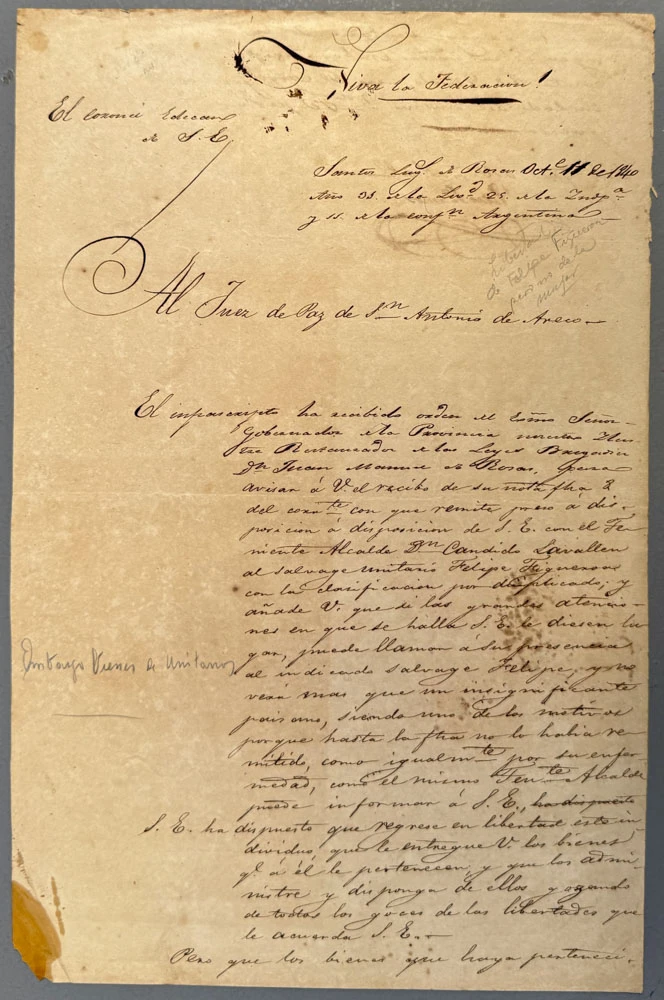 Viva la Federacion!
El Coronel Edecan
de S. E.
Santos Lug.s de Rosas Oct.e 11 de 1840
Año 31 de la Lib.d 25 de la Indp.a
y 11 de la Conf.n Argentina
Libertad
de Felipe Figueroa
pero no de la
mujer
Al Juez de Paz de S.n Antonio de Areco
El infrascripto ha recibido orden del Exmo Señor
Gobernador de la Provincia nuestro Ilus
tre Restaurador de las Leyes Brigadier
Dn Juan Manuel de Rosas, para
avisar á V. el recibo de su nota fha 2
del corr.te con que remite preso á dis-
posicion á disposicion de S. E. con el Te
niente Alcalde Dn Candido Lavallen
al salvage unitario Felipe Figueroa
con la clasificacion por duplicado; y
añade V. que si las grandes atencio-
nes en que se halla S. E. le diesen lu
gar, puede llamar á su presencia
al indicado salvage Felipe, y no
verá mas que un insignificante
paisano, siendo uno de los motivos
porque hasta la fha no lo habia re
mitido, como igualm.te por su enfer
medad, como el mismo Ten.te Alcalde
puede informar á S. E., ha dispuesto
S. E. ha dispuesto que regrese en libertad este in
dividuo, que le entregue V. los bienes
q.e á él le pertenecen, y que los admi-
nistre y disponga de ellos gozando
de todos los goces de las libertades que
le acuerda S. E.
Embargo Bienes de Unitarios
Pero que los bienes que haya perteneci-